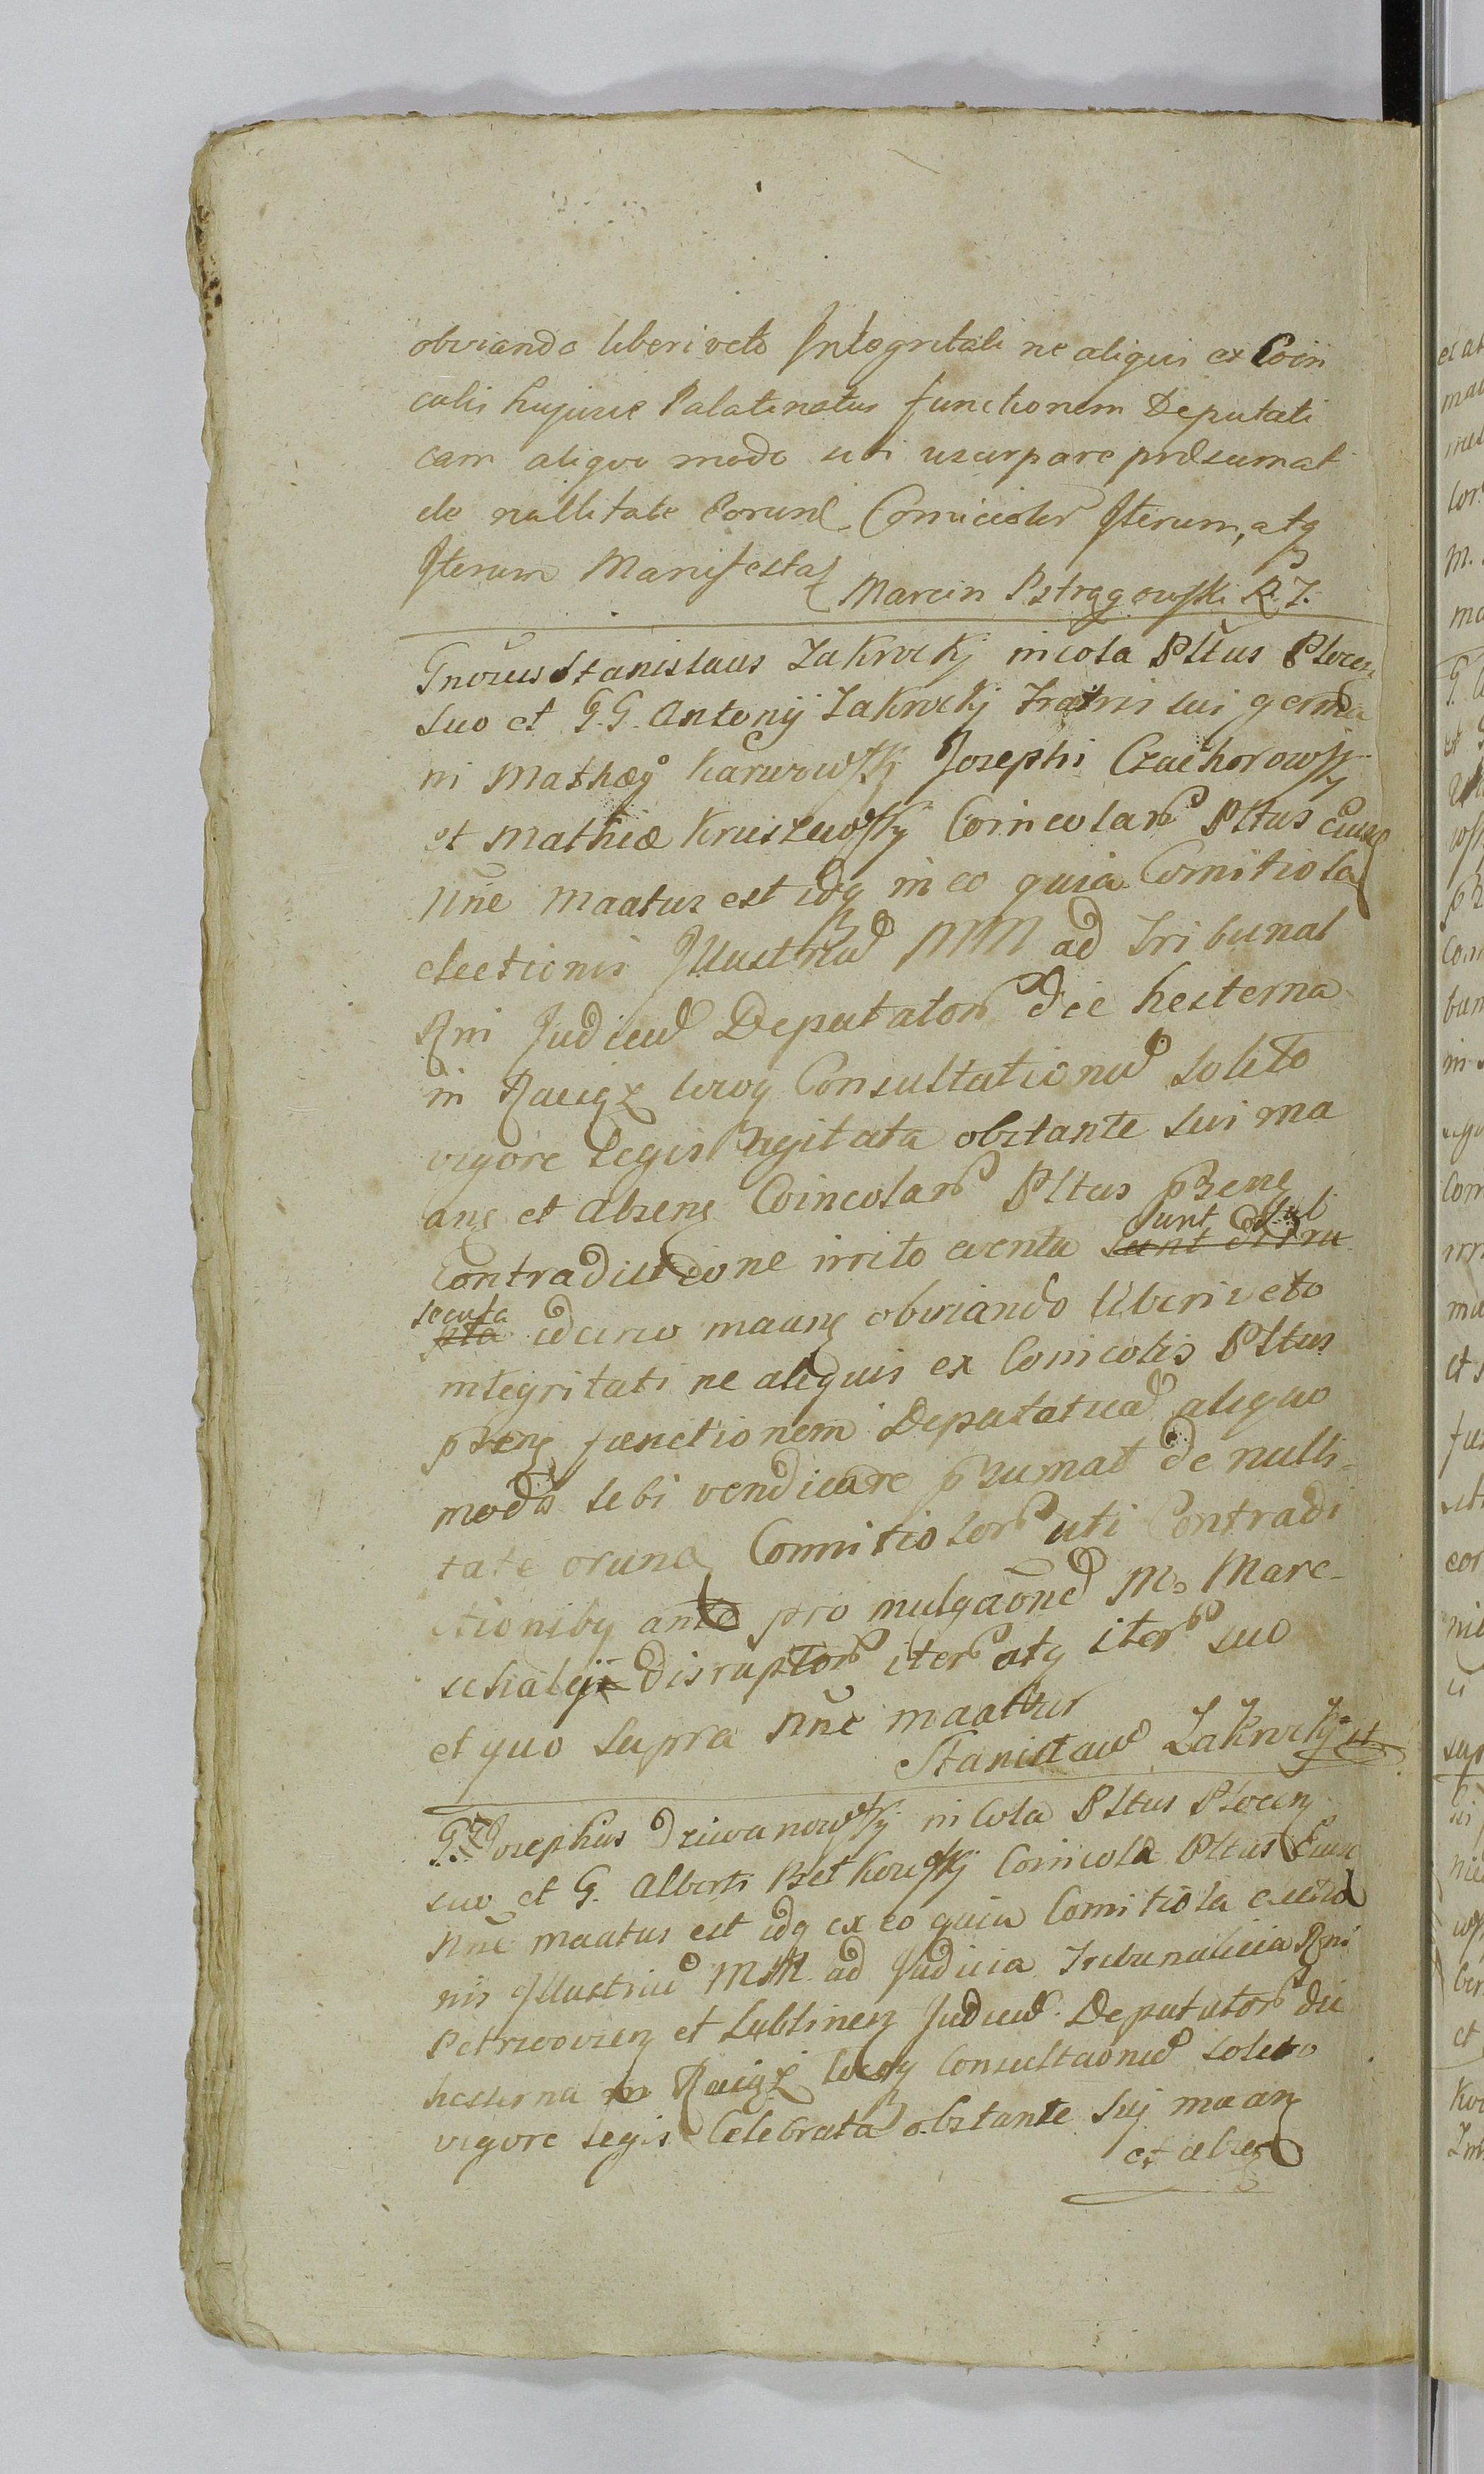 obviando liberi veto Integritati ne aliquis ex Coin
colis hujusce Palatinatus functionem Deputati
cam aliquo modo sibi usurpare præsumat
de nullitate Eorund Comiciolor Iterum, atq
Iterum Manifestat
Marcin Pstrągowski R. Z.
Gnosus Stanislaus Zakrocki incola Pltus Plocen
suo et G. G. Antonij Zakrockj Fratris sui germa
ni Mathæj Karwowskj Josephi Czachorowskj
et Mathiæ Kruszewskj Coincolar Pltus eiusd
Nñe maatus est idq in eo quia Comitiola
electionis Illustriu MM ad Tribunal
Rni Judicu Deputator die hesterna
in Raciąż locoq Consultationu solito
vigore Legis agitata obstante sui ma
ans et absens Coincolar Pltus Psens
Contradictione irrito eventu sunt disru
sunt Sub
secuta
pta idcirco maans obviando liberi veto
integritati ne aliquis ex Coincolis Pltus
psens functionem Deputatua aliquo
modo sibi vendicare psumat de nulli-
tate orund Comitiolor uti Contradi
ctionibq ante pro mulgaõne M. Mare-
schalij disruptor iter atq iter suo
et quo supra Nñe maatur
Stanisław Zakrocki
G. Josephus Dziwanowskj incola Pltus Plocen
suo et G. Alberti Bětkowskj Coincola Pltus Eiusd
Nñe maatus est idq ex eo quia Comitiola electio
nis Illustriu MM. ad Judicia Tribunalicia Rni
Petricovien et Lublinen Judicu Deputator die
hesterna in Raciąż locoq Consultaonu solito
vigore Legis Celebrata obstante sui maan
et absen